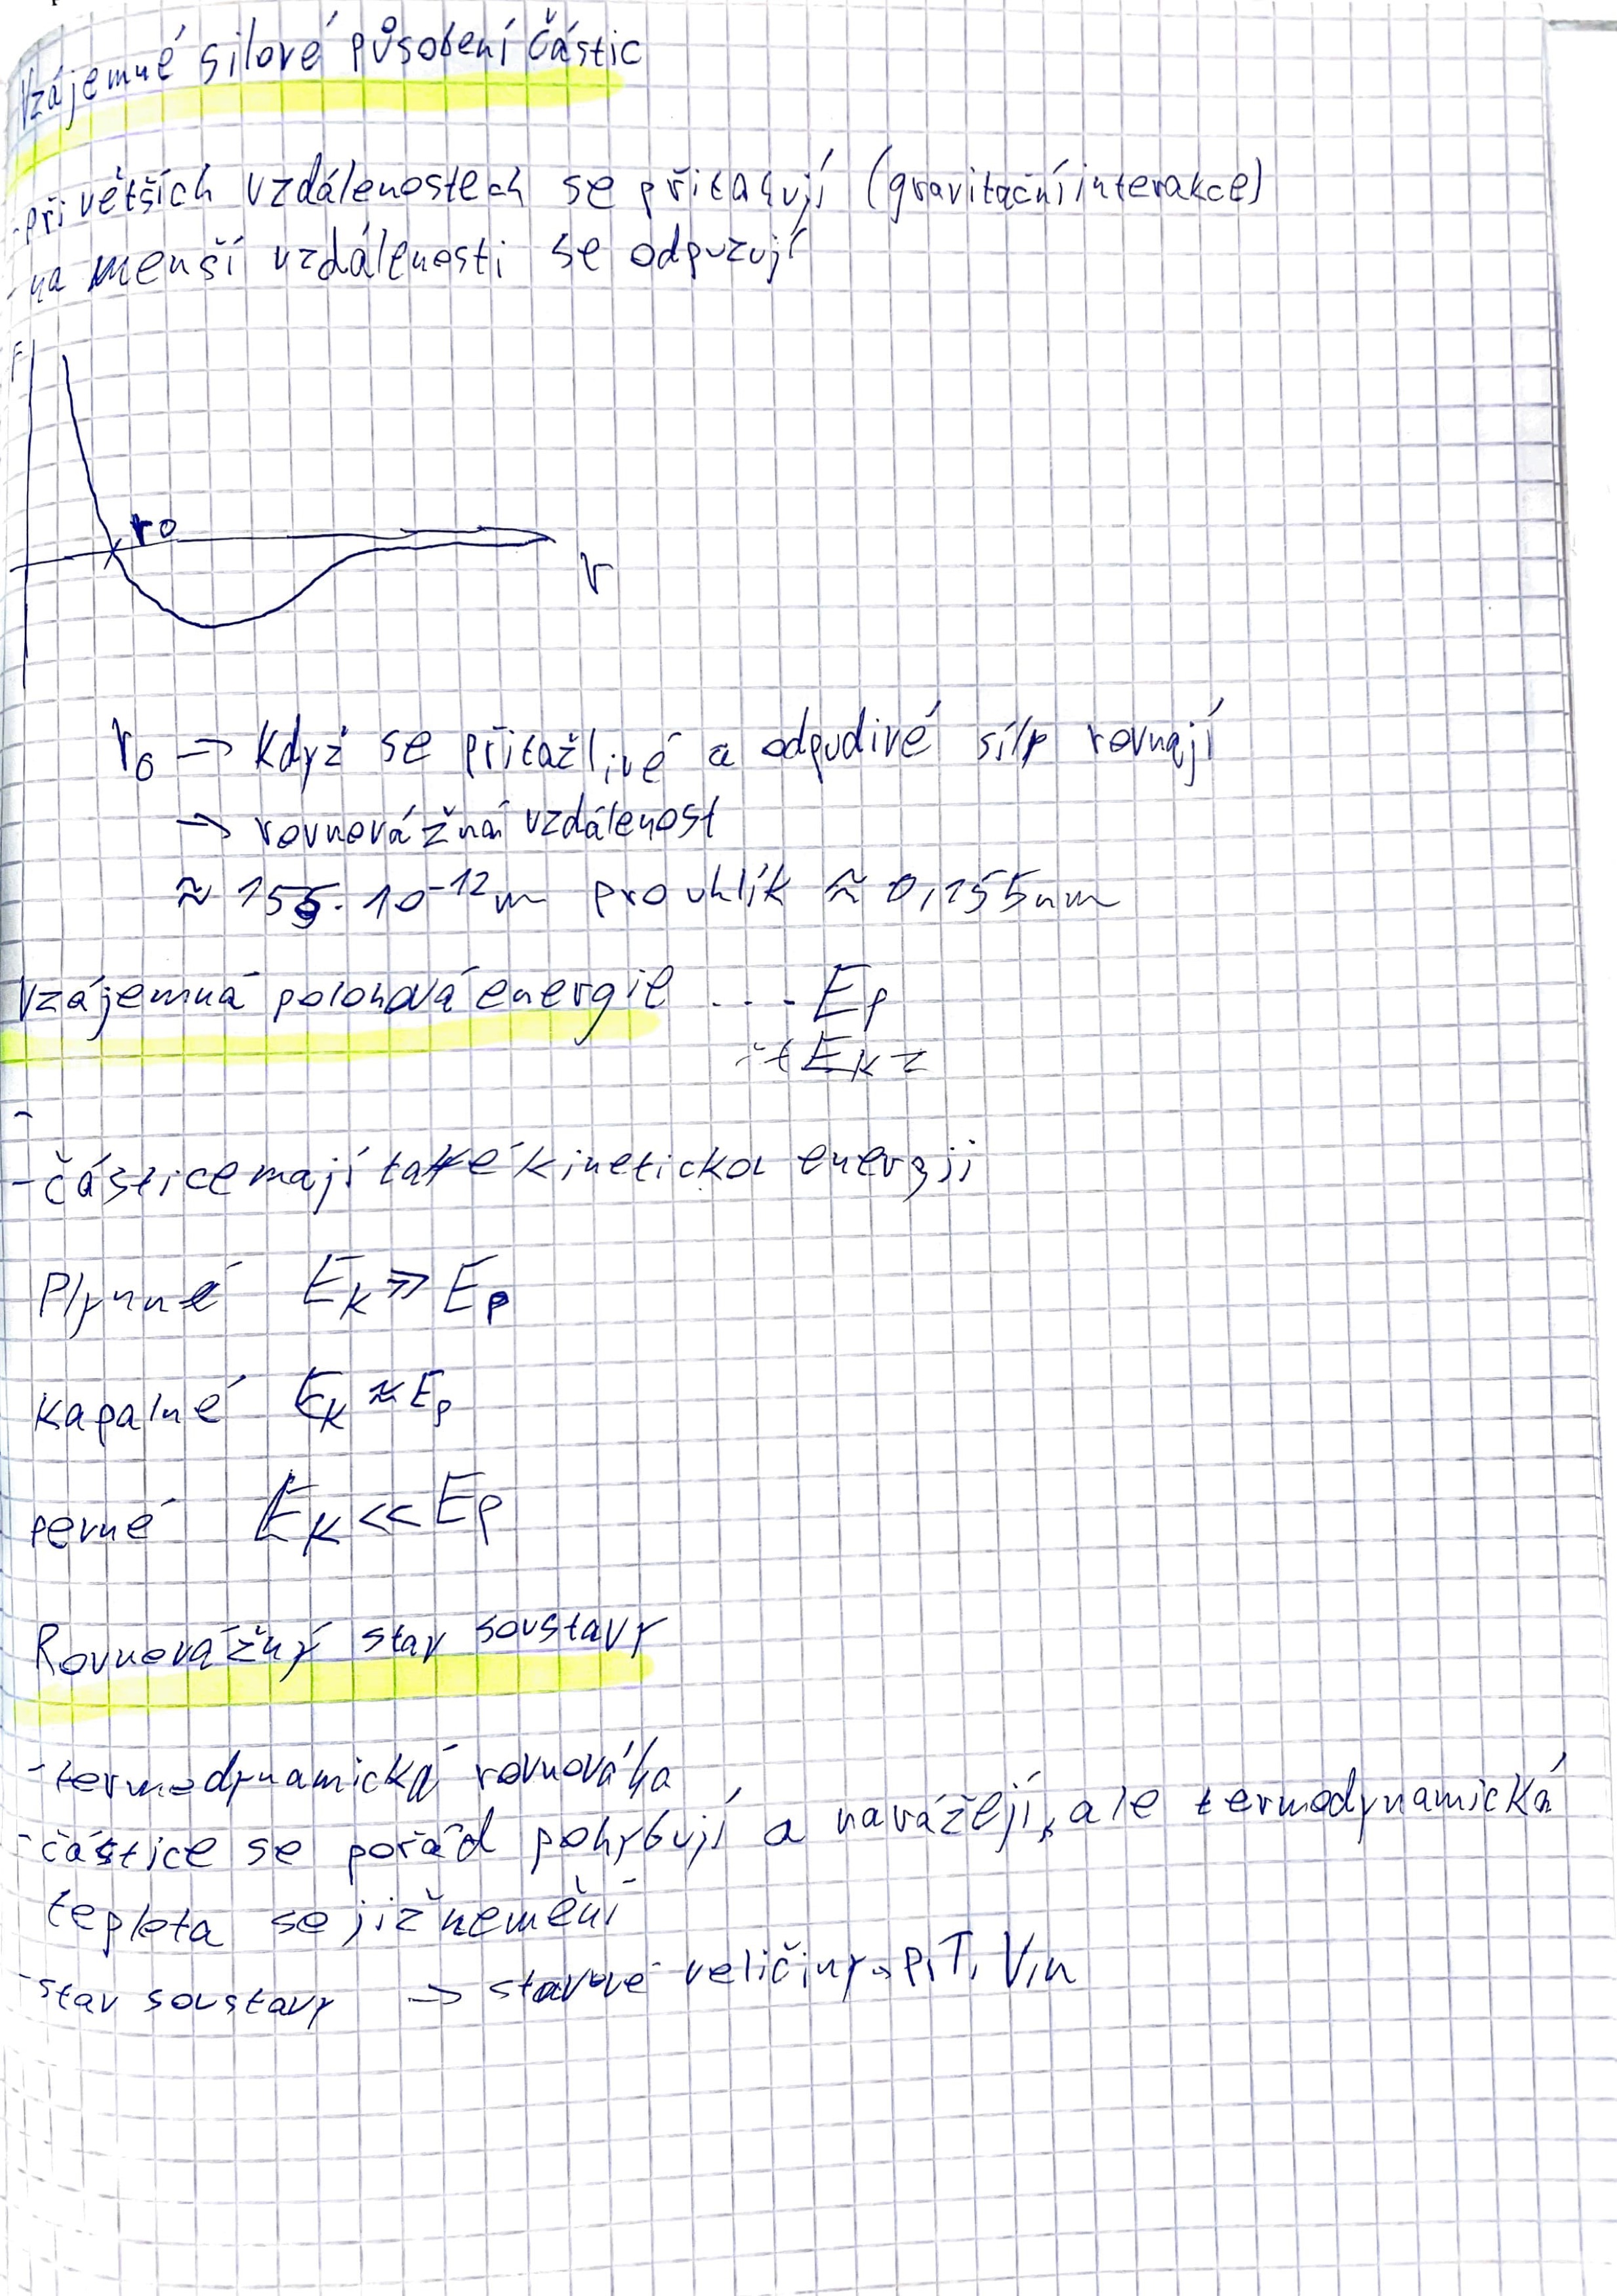 Vzájemné silové působení částic
-při větších vzdálenostech se přitahují (gravitační interakce)
-na menší vzdálenosti se odpuzují
F
r0
r
r0 -> když se přitažlivé a odpudivé síly rovnají
-> rovnovážná vzdálenost
≈ 155·10^-12 m pro uhlík ≈ 0,155nm
Vzájemná polohová energie ... Ep
-částice mají také kinetickou energji
Plynné Ek >> Ep
Kapalné Ek ≈ Ep
pevné Ek << Ep
Rovnovážný stav soustavy
-termodynamická rovnováha
-částice se pořád pohybují a narážejí, ale termodynamická
teplota se již nemění
-stav soustavy -> stavové veličiny p,T,V,n